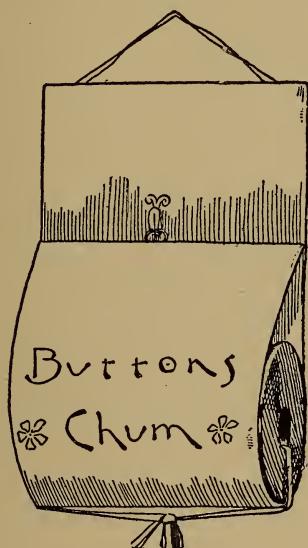 Buttons
Chum